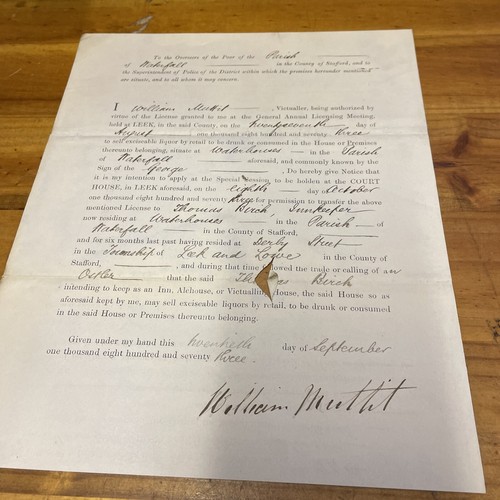 To the Overseers of the Poor of the Parish
of Waterfall in the County of Stafford, and to
the Superintendent of Police of the District within which the premises hereunder mentioned
are situate, and to all whom it may concern.
I William Muttit, Victualler, being authorized by
virtue of the License granted to me at the General Annual Licensing Meeting,
held at LEEK, in the said County, on the twentyseventh day of
August one thousand eight hundred and seventy three
to sell exciseable liquor by retail to be drunk or consumed in the House or Premises
thereunto belonging, situate at Waterhouses in the Parish
of Waterfall aforesaid, and commonly known by the
Sign of the George, Do hereby give Notice that
it is my intention to apply at the Special Session, to be holden at the COURT
HOUSE, in LEEK aforesaid, on the eighth day of October
one thousand eight hundred and seventy three for permission to transfer the above
mentioned License to Thomas Birch, Innkeeper
now residing at Waterhouses in the Parish of
Waterfall in the County of Stafford,
and for six months last past having resided at Derby Street
in the Township of Leek and Lowe in the County of
Stafford, and during that time followed the trade or calling of an
Ostler that the said Thomas Birch
intending to keep as an Inn, Alehouse, or Victualling House, the said House so as
aforesaid kept by me, may sell exciseable liquors by retail, to be drunk or consumed
in the said House or Premises thereunto belonging.
Given under my hand this twentieth day of September
one thousand eight hundred and seventy three.
William Muttit